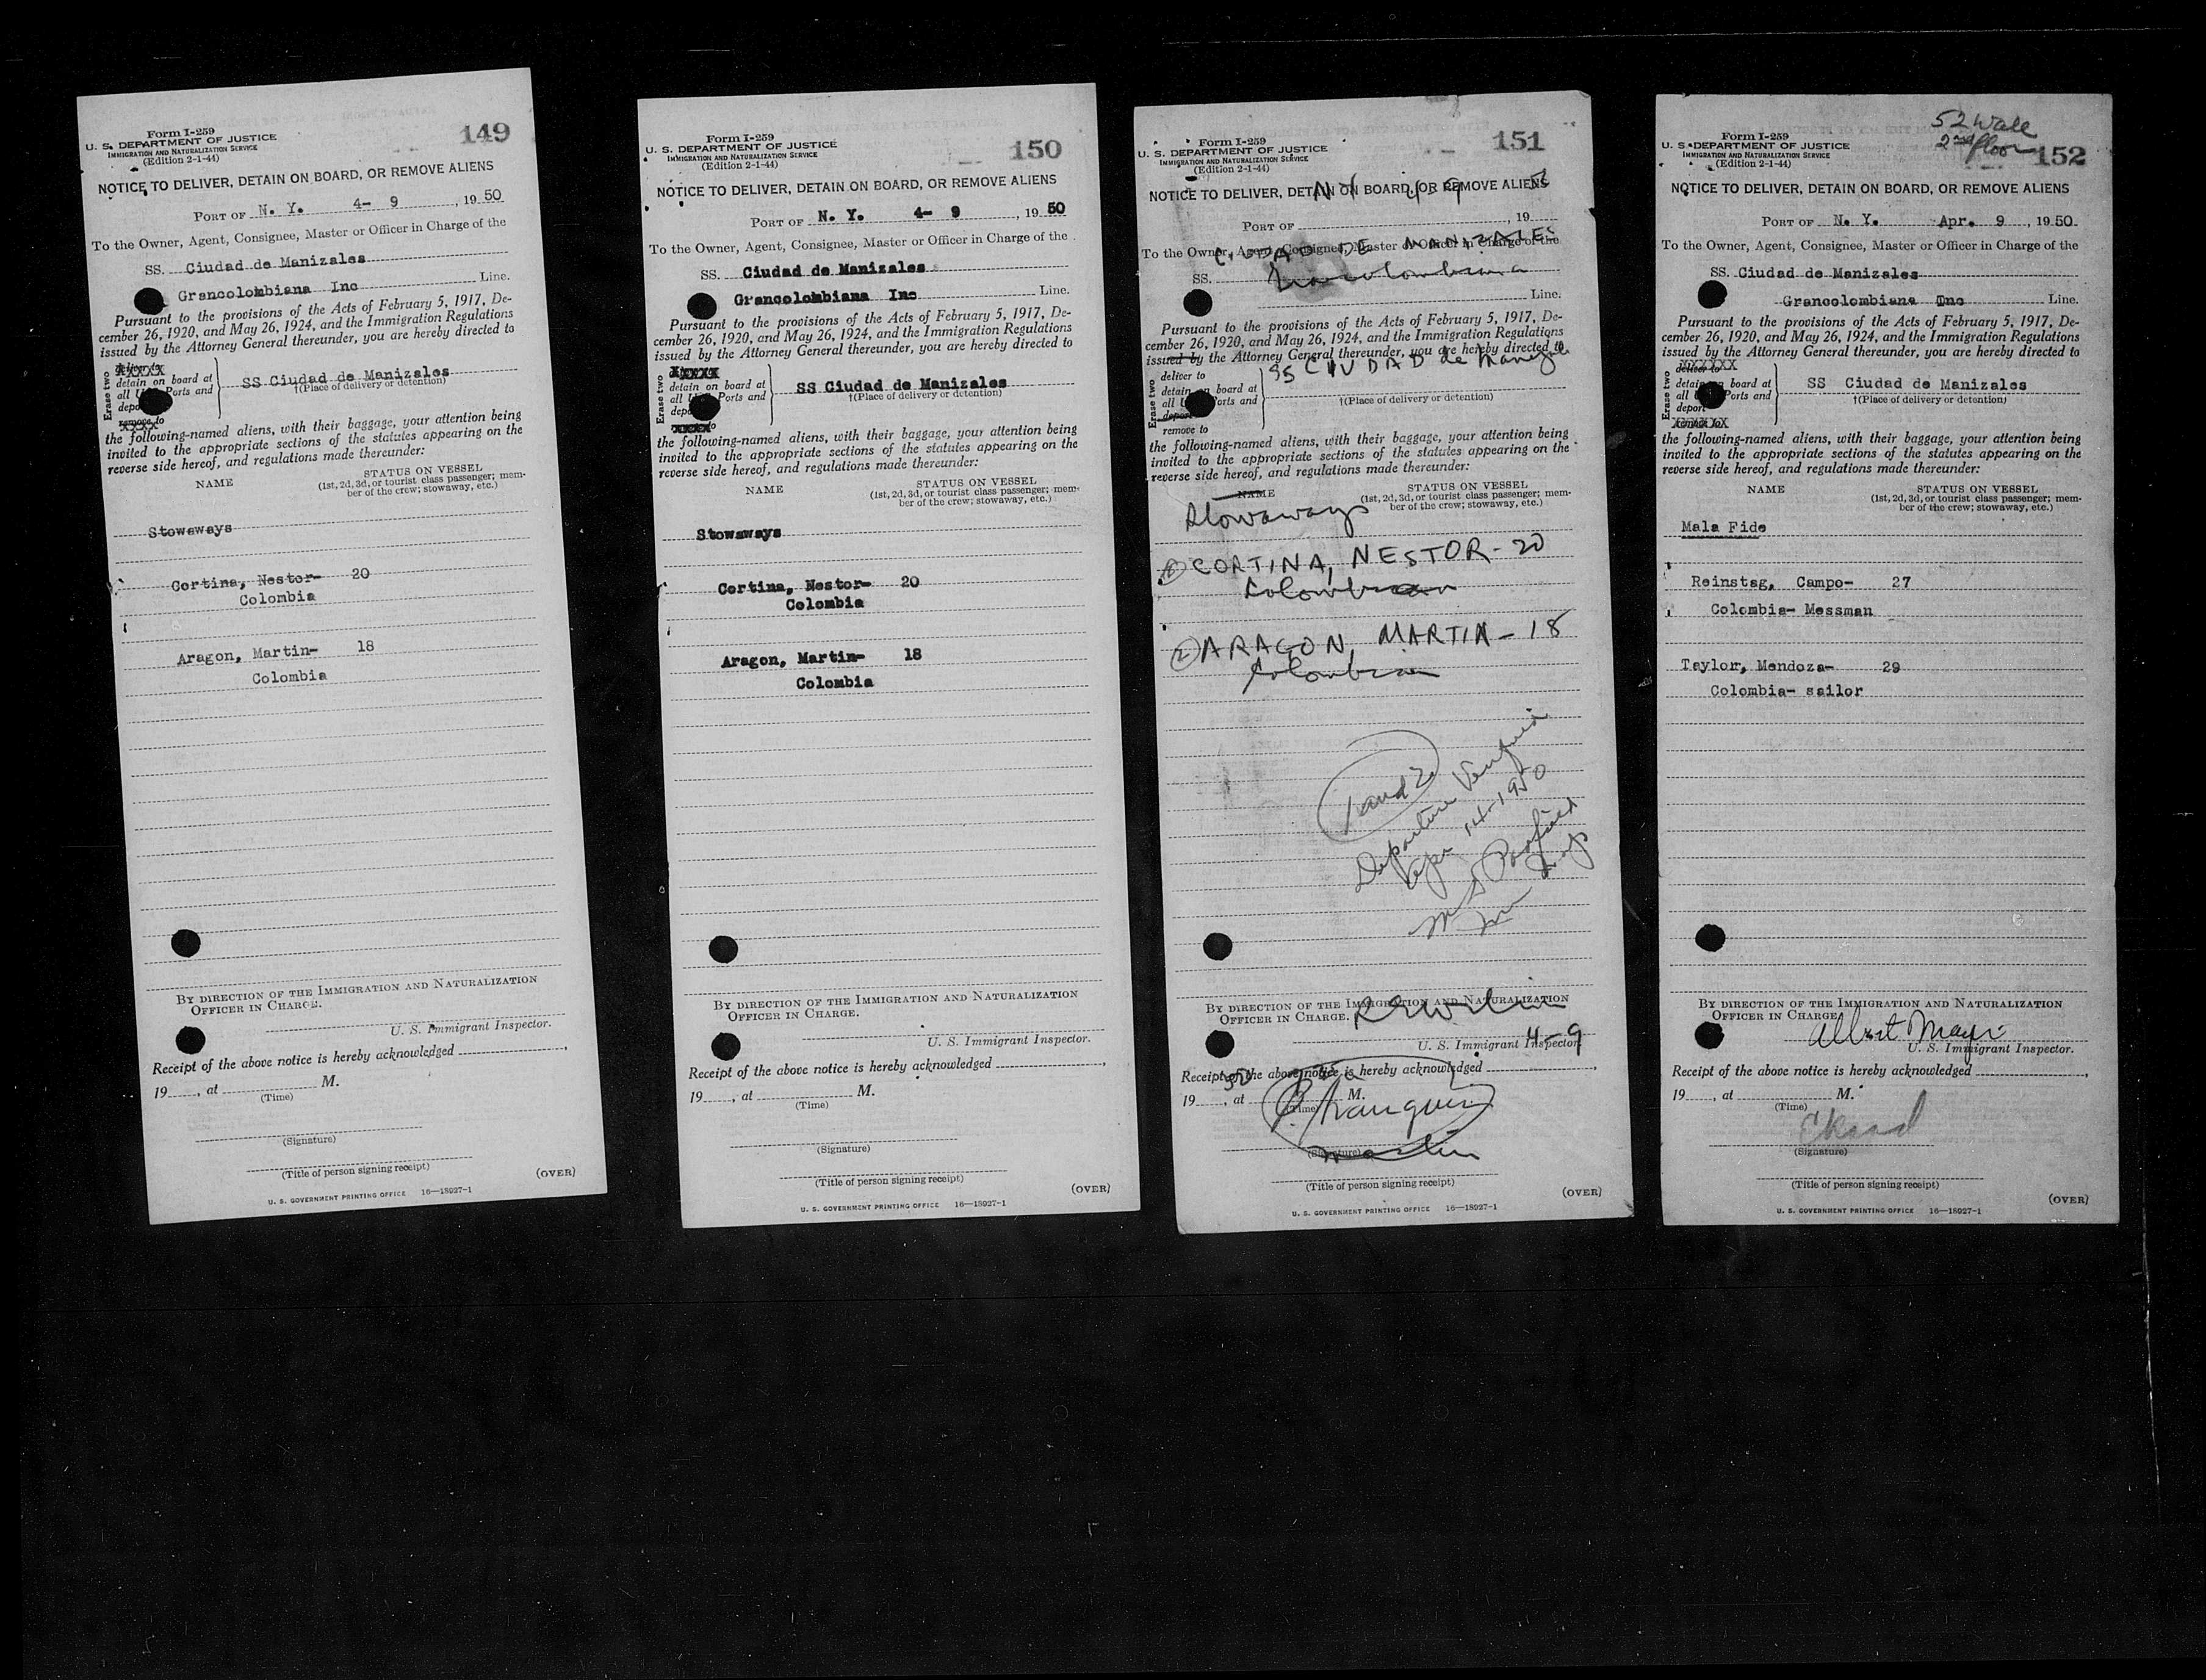 Form I-259
149
U. S. DEPARTMENT OF JUSTICE
IMMIGRATION AND NATURALIZATION SERVICE
(Edition 2-1-44)
NOTICE TO DELIVER, DETAIN ON BOARD, OR REMOVE ALIENS
PORT OF N. Y. 4- 9, 1950
To the Owner, Agent, Consignee, Master or Officer in Charge of the
SS. Ciudad de Manizales
Grancolombiana Inc Line.
Pursuant to the provisions of the Acts of February 5, 1917, De-
cember 26, 1920, and May 26, 1924, and the Immigration Regulations
issued by the Attorney General thereunder, you are hereby directed to
Erase two
detain on board at
all Ports and
SS Ciudad de Manizales
†(Place of delivery or detention)
remove to
the following-named aliens, with their baggage, your attention being
invited to the appropriate sections of the statutes appearing on the
reverse side hereof, and regulations made thereunder:
NAME
STATUS ON VESSEL
(1st, 2d, 3d, or tourist class passenger; mem-
ber of the crew; stowaway, etc.)
Stowaways
Cortina, Nestor- 20
Colombia
Aragon, Martin- 18
Colombia
BY DIRECTION OF THE IMMIGRATION AND NATURALIZATION
OFFICER IN CHARGE.
U. S. Immigrant Inspector.
Receipt of the above notice is hereby acknowledged
19, at M.
(Time)
(Signature)
(Title of person signing receipt)
(OVER)
U. S. GOVERNMENT PRINTING OFFICE 16—18927-1
Form I-259
150
U. S. DEPARTMENT OF JUSTICE
IMMIGRATION AND NATURALIZATION SERVICE
(Edition 2-1-44)
NOTICE TO DELIVER, DETAIN ON BOARD, OR REMOVE ALIENS
PORT OF N. Y. 4- 9, 1950
To the Owner, Agent, Consignee, Master or Officer in Charge of the
SS. Ciudad de Manizales
Grancolombiana Inc Line.
Pursuant to the provisions of the Acts of February 5, 1917, De-
cember 26, 1920, and May 26, 1924, and the Immigration Regulations
issued by the Attorney General thereunder, you are hereby directed to
Erase two
detain on board at
all Ports and
SS Ciudad de Manizales
†(Place of delivery or detention)
the following-named aliens, with their baggage, your attention being
invited to the appropriate sections of the statutes appearing on the
reverse side hereof, and regulations made thereunder:
NAME
STATUS ON VESSEL
(1st, 2d, 3d, or tourist class passenger; mem-
ber of the crew; stowaway, etc.)
Stowaways
Cortina, Nestor- 20
Colombia
Aragon, Martin- 18
Colombia
BY DIRECTION OF THE IMMIGRATION AND NATURALIZATION
OFFICER IN CHARGE.
U. S. Immigrant Inspector.
Receipt of the above notice is hereby acknowledged
19, at M.
(Time)
(Signature)
(Title of person signing receipt)
(OVER)
U. S. GOVERNMENT PRINTING OFFICE 16—18927-1
Form I-259
151
U. S. DEPARTMENT OF JUSTICE
IMMIGRATION AND NATURALIZATION SERVICE
(Edition 2-1-44)
NOTICE TO DELIVER, DETAIN ON BOARD, OR REMOVE ALIENS
NY 4 9 5
PORT OF , 19
To the Owner, Agent, Consignee, Master or Officer in Charge of the
CIUDAD DE MANIZALES
SS.
Line.
Pursuant to the provisions of the Acts of February 5, 1917, De-
cember 26, 1920, and May 26, 1924, and the Immigration Regulations
issued by the Attorney General thereunder, you are hereby directed to
Erase two
deliver to
detain on board at
all Ports and
deport
remove to
SS CIUDAD de
†(Place of delivery or detention)
the following-named aliens, with their baggage, your attention being
invited to the appropriate sections of the statutes appearing on the
reverse side hereof, and regulations made thereunder:
NAME
STATUS ON VESSEL
(1st, 2d, 3d, or tourist class passenger; mem-
ber of the crew; stowaway, etc.)
Stowaways
① CORTINA, NESTOR - 20
Colombian
② ARAGON, MARTIN - 18
Colombian
1 and 2
Departure Verified
14-1950
BY DIRECTION OF THE IMMIGRATION AND NATURALIZATION
OFFICER IN CHARGE.
4-9
U. S. Immigrant Inspector.
Receipt of the above notice is hereby acknowledged
50
19, at M.
(Time)
(Signature)
(Title of person signing receipt)
(OVER)
U. S. GOVERNMENT PRINTING OFFICE 16—18927-1
52 Wall
2nd floor
Form I-259
152
U. S. DEPARTMENT OF JUSTICE
IMMIGRATION AND NATURALIZATION SERVICE
(Edition 2-1-44)
NOTICE TO DELIVER, DETAIN ON BOARD, OR REMOVE ALIENS
PORT OF N. Y. Apr. 9, 1950.
To the Owner, Agent, Consignee, Master or Officer in Charge of the
SS. Ciudad de Manizales
Grancolombiana Inc Line.
Pursuant to the provisions of the Acts of February 5, 1917, De-
cember 26, 1920, and May 26, 1924, and the Immigration Regulations
issued by the Attorney General thereunder, you are hereby directed to
Erase two
deliver to
detain on board at
all Ports and
deport
SS Ciudad de Manizales
†(Place of delivery or detention)
the following-named aliens, with their baggage, your attention being
invited to the appropriate sections of the statutes appearing on the
reverse side hereof, and regulations made thereunder:
NAME
STATUS ON VESSEL
(1st, 2d, 3d, or tourist class passenger; mem-
ber of the crew; stowaway, etc.)
Mala Fide
Reinstag, Campo- 27
Colombia- Messman
Taylor, Mendoza- 29
Colombia- sailor
BY DIRECTION OF THE IMMIGRATION AND NATURALIZATION
OFFICER IN CHARGE.
Albert
U. S. Immigrant Inspector.
Receipt of the above notice is hereby acknowledged
19, at M.
(Time)
(Signature)
(Title of person signing receipt)
(OVER)
U. S. GOVERNMENT PRINTING OFFICE 16—18927-1